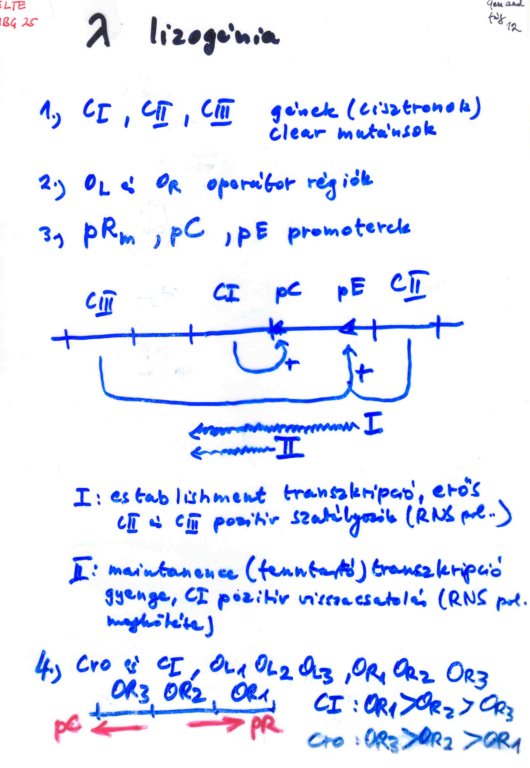 ELTE
MBG 25
12
λ lizogénia
1., CI, CII, CIII gének (cisztronok)
clear mutánsok
2., OL és OR operátor régiók
3, pRm, pC, pE promoterek
CIII CI pC pE CII
+ +
I
II
I: establishment transzkripció, erős
CII és CIII pozitív szabályozók (RNS pol..)
II: maintanence (fenntartó) transzkripció
gyenge, CI pozitív visszacsatolás (RNS pol.
megkötése)
4., Cro és CI, OL1 OL2 OL3, OR1 OR2 OR3
OR3 OR2 OR1 CI: OR1>OR2>OR3
pC pR
cro: OR3>OR2>OR1